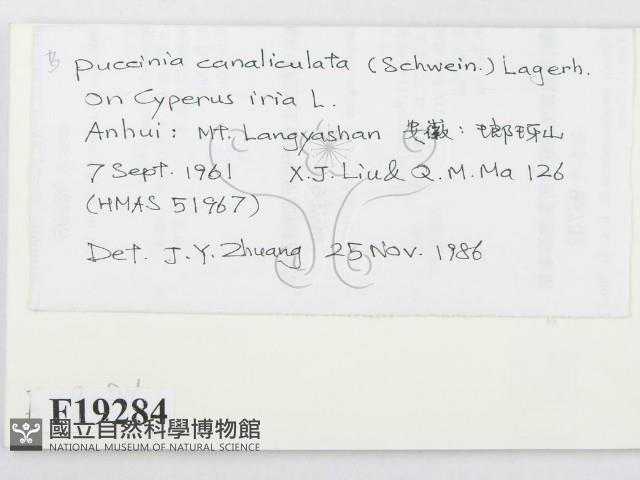 Puccinia canaliculata (Schwein.) Lagerh.
on Cyperus iria L.
Anhui: Mt. Langyashan 安徽: 瑯琊山
7 Sept. 1961 X.J. Liu & Q.M. Ma 126
(HMAS 51967)
Det. J.Y. Zhuang 25 Nov. 1986
F19284
國立自然科學博物館
NATIONAL MUSEUM OF NATURAL SCIENCE